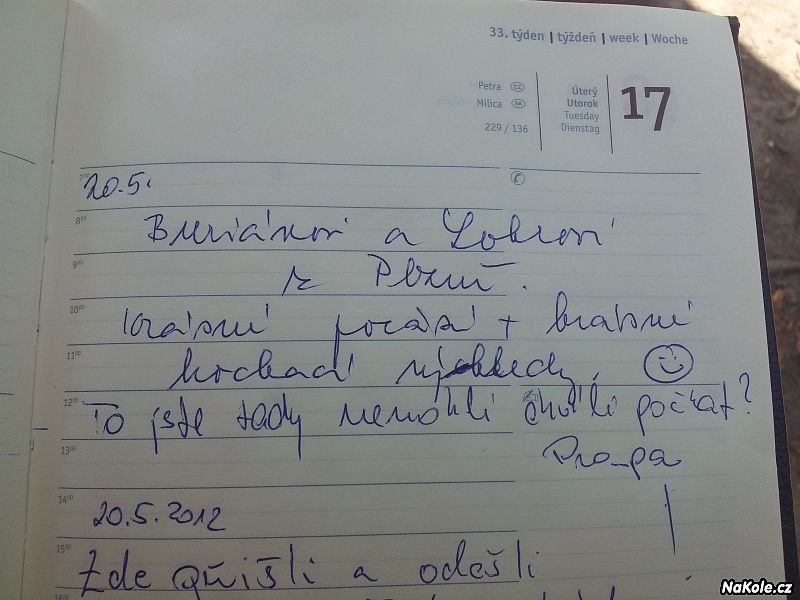 33. týden | týždeň | week | Woche
Petra CZ
Milica SK
229 / 136
Úterý
Utorok
Tuesday
Dienstag
17
7⁰⁰
20.5.
8⁰⁰
Buriánovi a
9⁰⁰
z Plzně.
10⁰⁰
krásné počasí + krásné
11⁰⁰
kochací výhledy. ☺
12⁰⁰
To jste tady nemohli chvíli počkat?
13⁰⁰
Pro-pa
14⁰⁰
20.5.2012
15⁰⁰
Zde a odešli
16⁰⁰
NaKole.cz